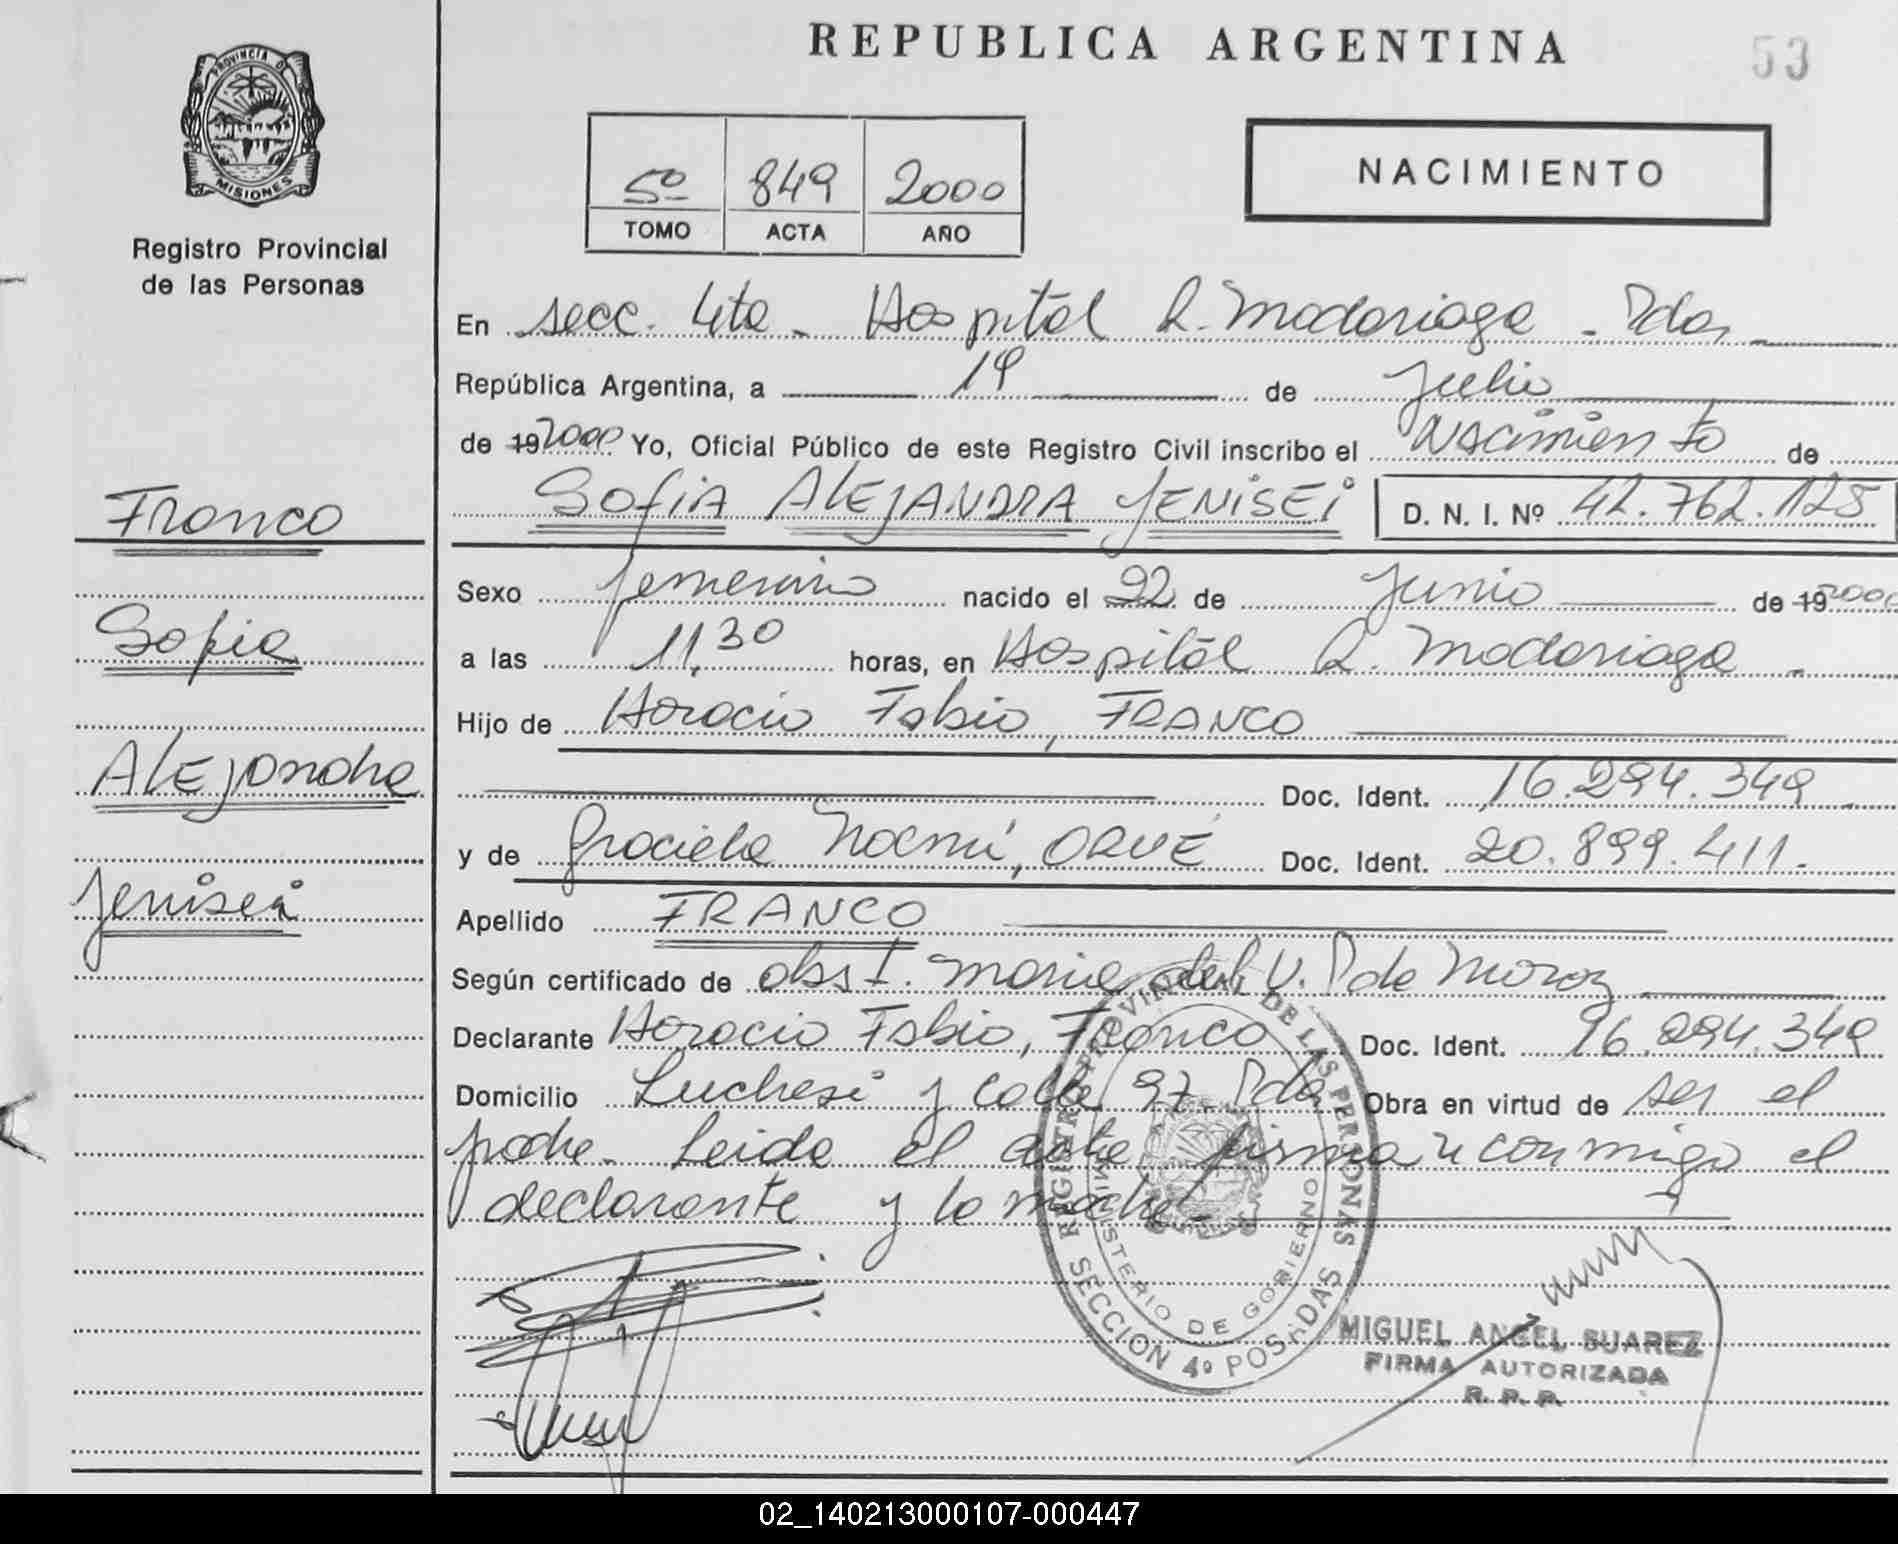 REPUBLICA ARGENTINA
53
PROVINCIA DE
MISIONES
Registro Provincial
de las Personas
5º 849 2000
TOMO ACTA AÑO
NACIMIENTO
En secc. 4ta. Hospital R. Madariaga. Pdas
República Argentina, a 19 de Julio
de 19 2000 Yo, Oficial Público de este Registro Civil inscribo el Nacimiento de
SOFIA ALEJANDRA JENISEI D. N. I. Nº 42.762.125
Franco
Sofia
Alejandra
Jenisei
Sexo femenino nacido el 22 de Junio de 19 2000
a las 11,30 horas, en Hospital R. Madariaga.
Hijo de Horacio Fabio, FRANCO
Doc. Ident. 16.294.349
y de Graciela Noemí, ORUÉ Doc. Ident. 20.899.411.
Apellido FRANCO
Según certificado de obst. Maria del V. P de Moroz
Declarante Horacio Fabio, Franco Doc. Ident. 16.294.349
Domicilio Luchesi y calle 97. Pdas Obra en virtud de ser el
padre. Leida el acta firman conmigo el
declarante y la madre.
REGISTRO PROVINCIAL DE LAS PERSONAS
MINISTERIO DE GOBIERNO
SECCION 4º POSADAS
MIGUEL ANGEL SUAREZ
FIRMA AUTORIZADA
R. P. P.
02_140213000107-000447